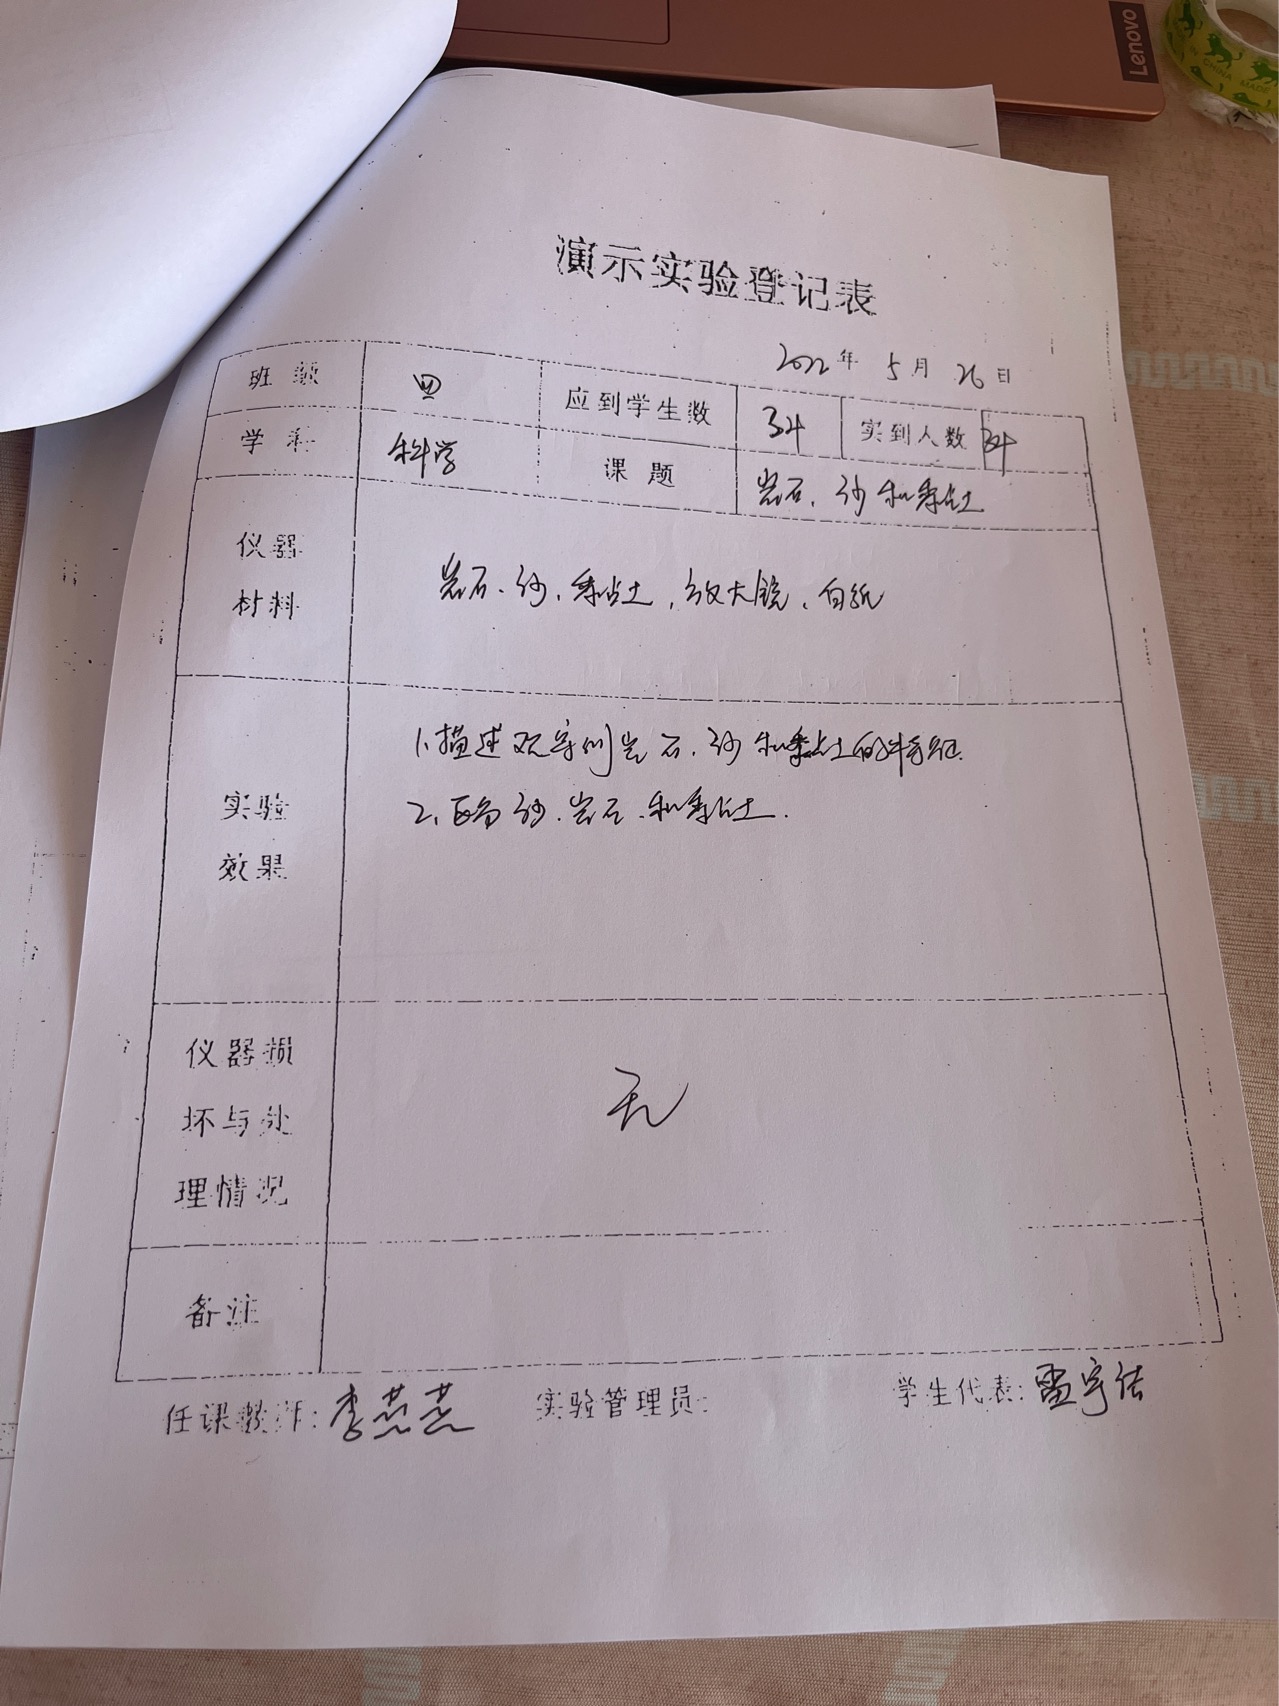 Lenovo
CHINA MADE
演示实验登记表
2022年 5月 26日
班级 四 应到学生数 34 实到人数 34
学科 科学 课题 岩石、沙和黏土
仪器
材料
岩石、沙、黏土、放大镜、白纸
实验
效果
1、描述观察到岩石、沙和黏土的特征
2、 沙、岩石、和黏土.
仪器损
坏与处
理情况
无
备注
任课教师:李燕燕 实验管理员: 学生代表:雷宇